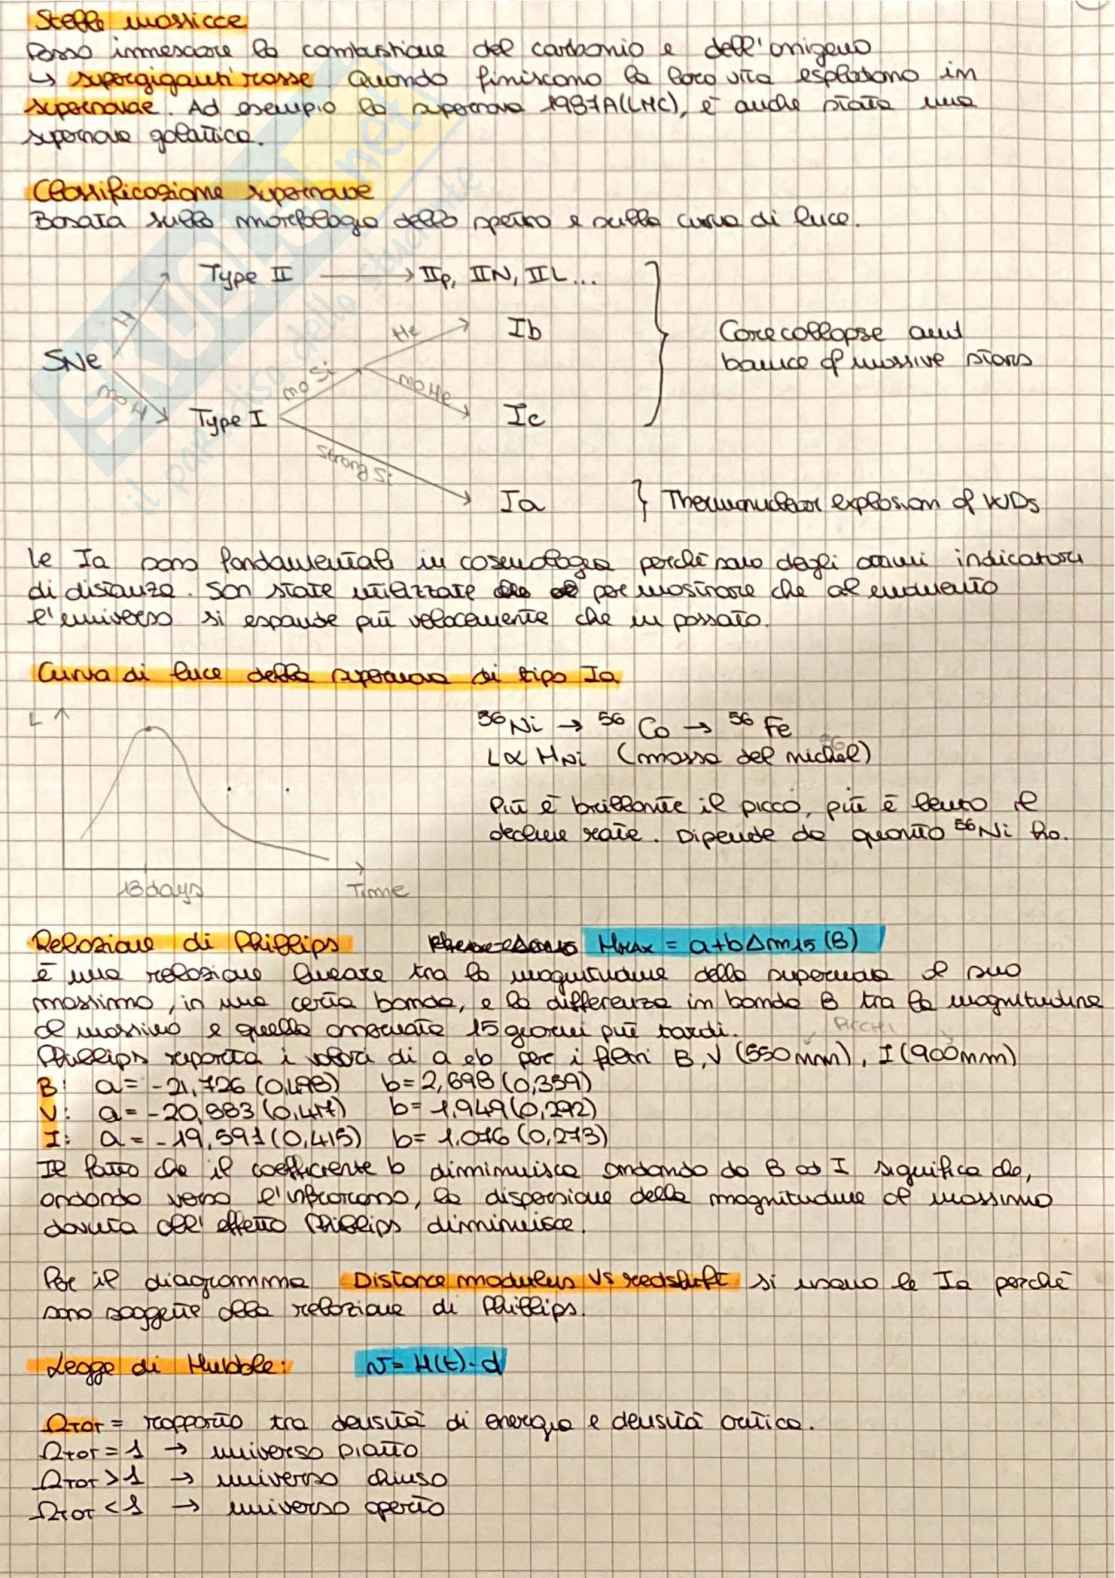 Stelle massicce
Posso innescare la combustione del carbonio e dell'ossigeno
↳ supergiganti rosse Quando finiscono la loro vita esplodono in
supernovae. Ad esempio la supernova 1987A(LMC), è anche stata una
supernova galattica.
Classificazione supernovae
Basata sulla morfologia dello spettro e sulla curva di luce.
Type II → IIp, IIN, IIL...
H
He
Ib
SNe
no Si
no He
Core collapse and
bounce of massive stars
no H
Type I
Ic
strong Si
Ia } Thermonuclear explosion of WDs
le Ia sono fondamentali in cosmologia perché sono degli ottimi indicatori
di distanza. Son state utilizzate per mostrare che al momento
l'universo si espande più velocemente che in passato.
Curva di luce della supernova di tipo Ia
L
⁵⁶Ni → ⁵⁶Co → ⁵⁶Fe
L∝ MNi (massa del nichel)
Più è brillante il picco, più è lento il
decline rate. Dipende da quanto ⁵⁶Ni ho.
18days Time
Relazione di Phillips MMAX = a+bΔm15(B)
è una relazione lineare tra la magnitudine della supernova al suo
massimo, in una certa banda, e la differenza in banda B tra la magnitudine
al massimo e quella misurata 15 giorni più tardi.
PICCHI
Phillips riporta i valori di a e b per i filtri B, V (550nm), I (900nm)
B: a= -21,726 (0,498) b=2,698 (0,359)
V: a= -20,883 (0,417) b= 1,949 (0,292)
I: a= -19,591 (0,415) b= 1,076 (0,273)
Il fatto che il coefficiente b diminuisca andando da B ad I significa che,
andando verso l'infrarosso, la dispersione della magnitudine al massimo
dovuta all'effetto Phillips diminuisce.
Per il diagramma Distance modulus vs redshift si usano le Ia perché
sono soggette alla relazione di Phillips.
Legge di Hubble: v= H(t)·d
ΩTOT = rapporto tra densità di energia e densità critica.
ΩTOT = 1 → universo piatto
ΩTOT > 1 → universo chiuso
ΩTOT < 1 → universo aperto